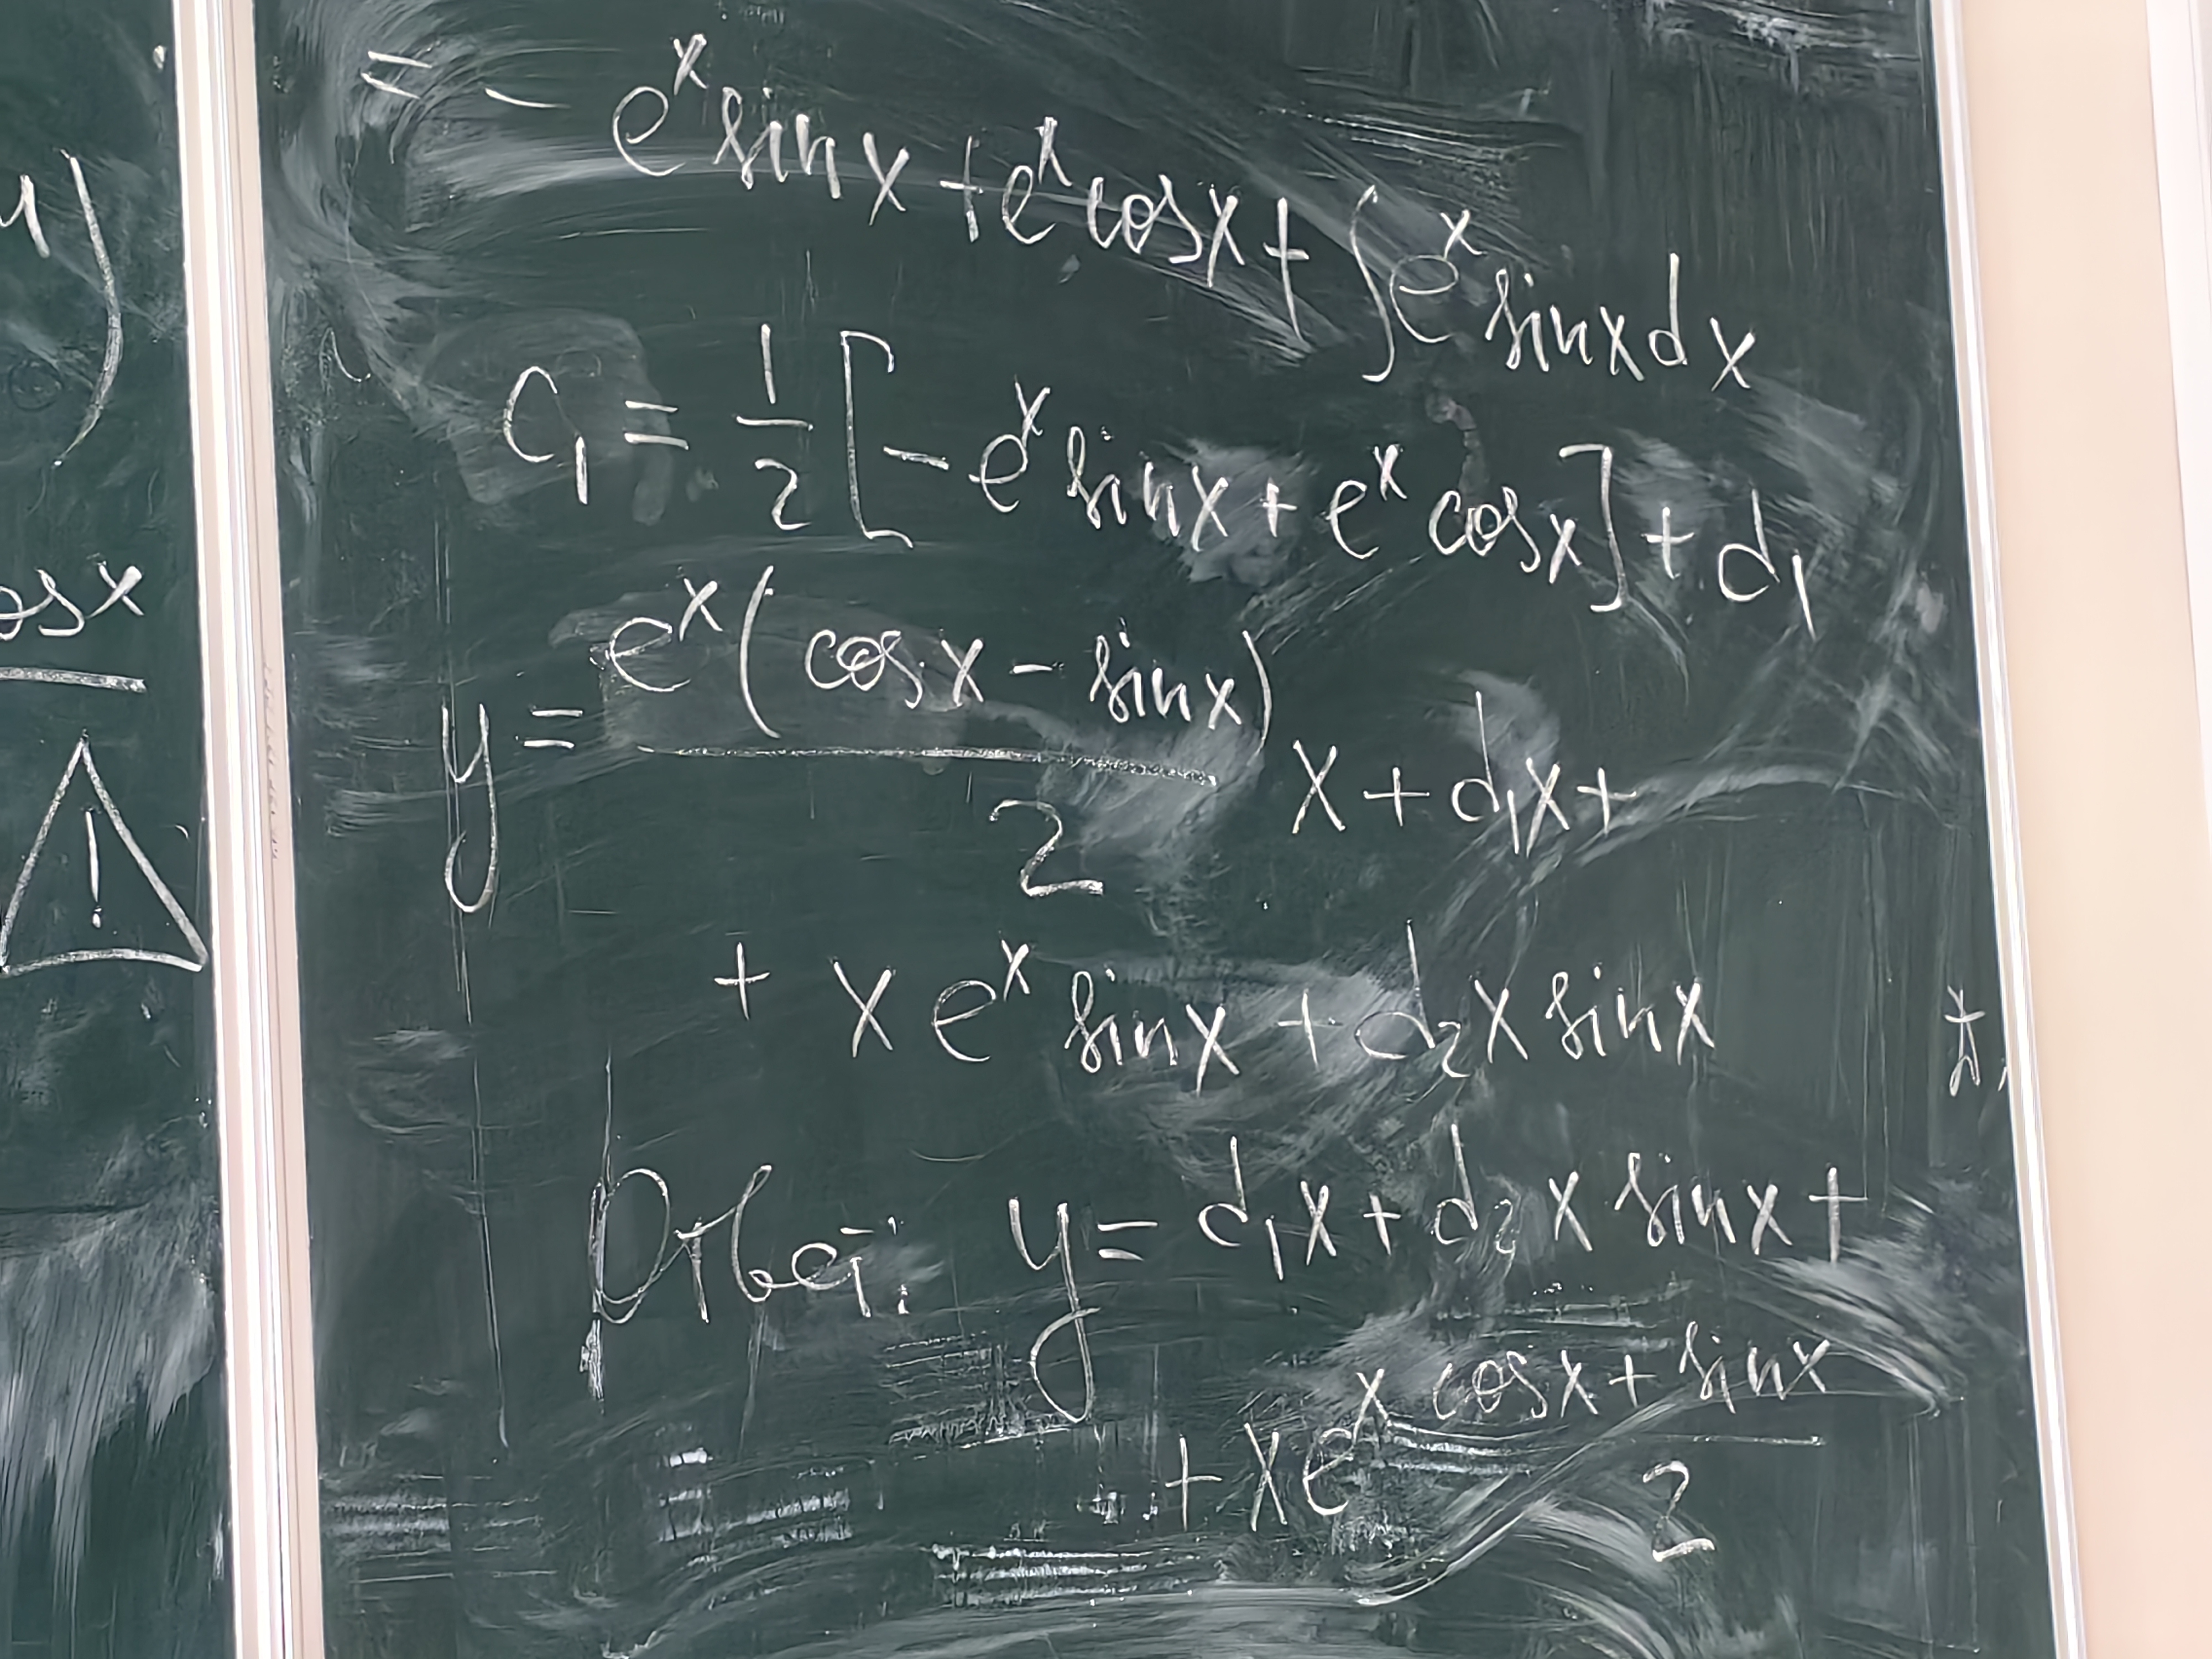 = - e^x sin x + e^x cos x + ∫ e^x sin x dx
C₁ = 1/2 [ - e^x sin x + e^x cos x ] + d₁
y = e^x ( cos x - sin x ) / 2 x + d₁x +
+ x e^x sin x + d₂ x sin x
Ответ: y = d₁x + d₂ x sin x +
+ x e^x (cos x + sin x) / 2